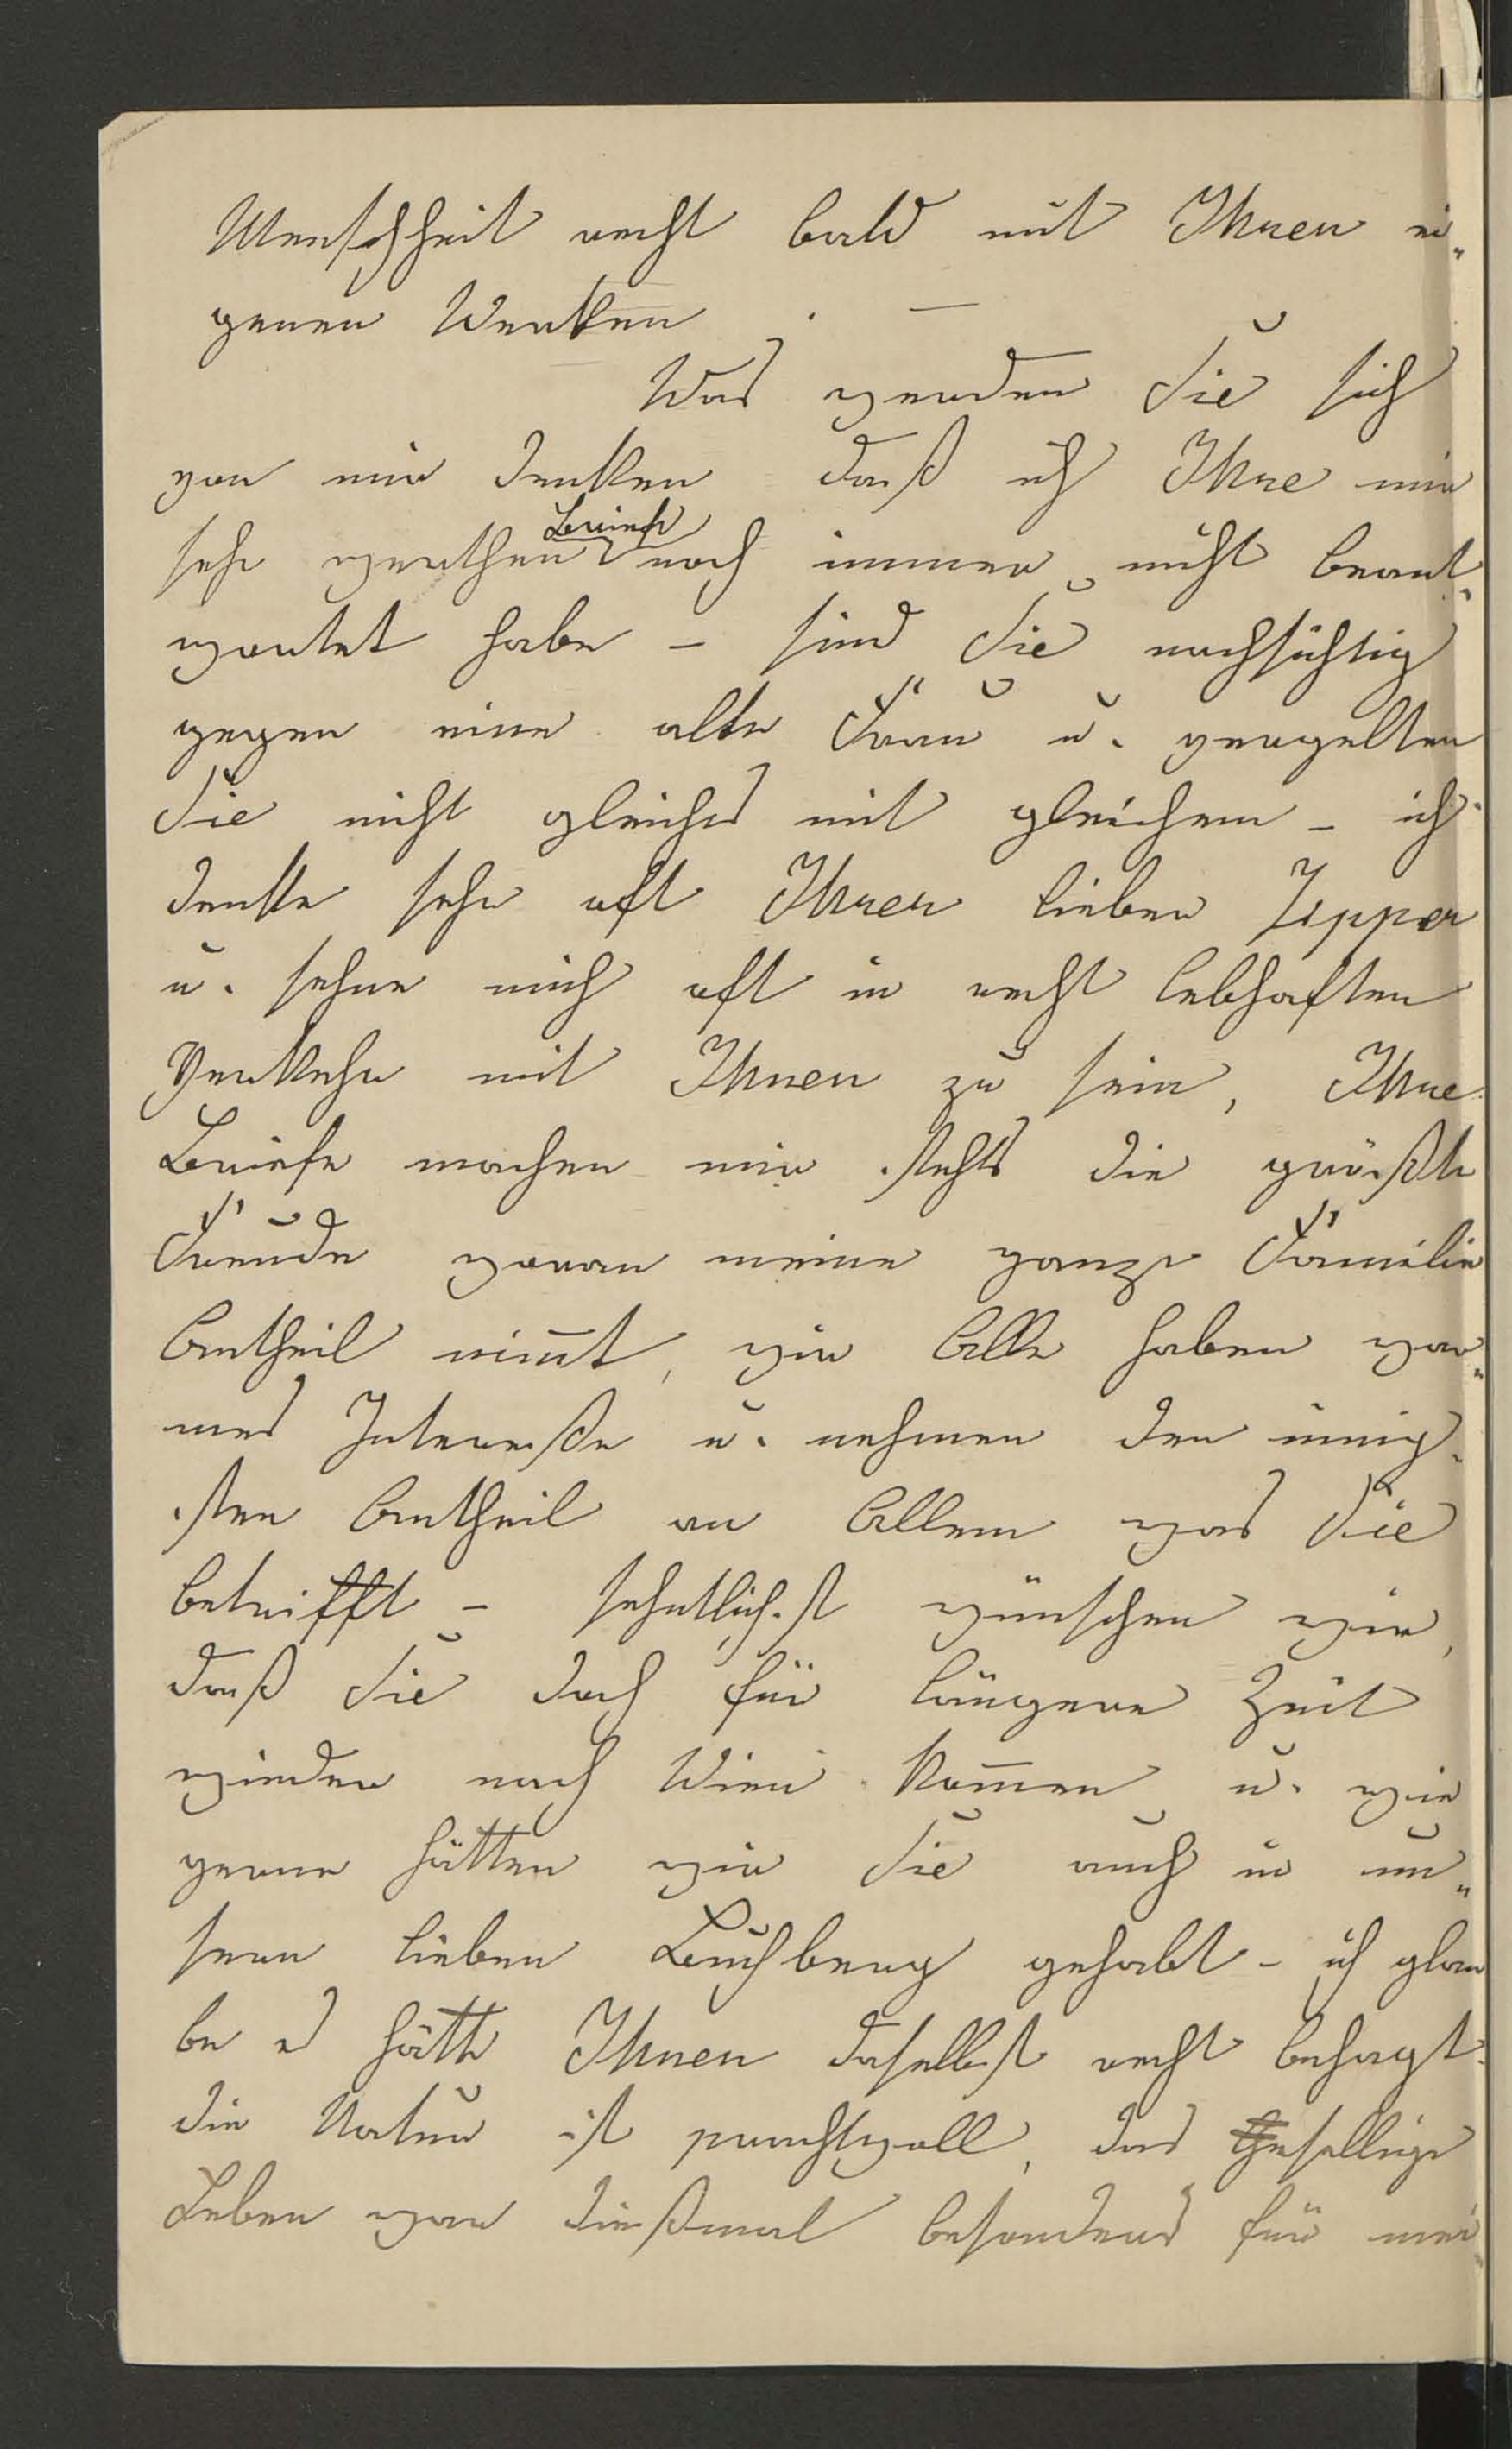 Menschheit recht bald mit Ihren ei„
genen Werken . —
Was werden Sie sich
von mir denken daß ich Ihre mir
sehr werthen Briefe noch immer nicht beant„
wortet habe – sind Sie nachsichtig
gegen eine alte Frau u. vergelten
Sie nicht gleiches mit gleichem – ich
denke sehr oft Ihrer lieben
u. sehne mich oft in recht lebhaften
Verkehr mit Ihnen zu sein, Ihre
Briefe machen mir stehts die größte
Freude woran meine ganze Familie
Antheil nim̅t, wir Alle haben war„
mes Intereße u. nehmen den innig„
sten Antheil an Allem was Sie
betrifft – sehnlichst wünschen wir,
daß Sie doch für längere Zeit
wieder nach Wien kom̅en u. wie
gerne hätten wir Sie auch in un„
sern lieben Buchberg gehabt – ich glau
be es hätte Ihnen daselbst recht behagt
die Natur ist prachtvoll, das Gesellige
Leben war dießmal besonders für mei„